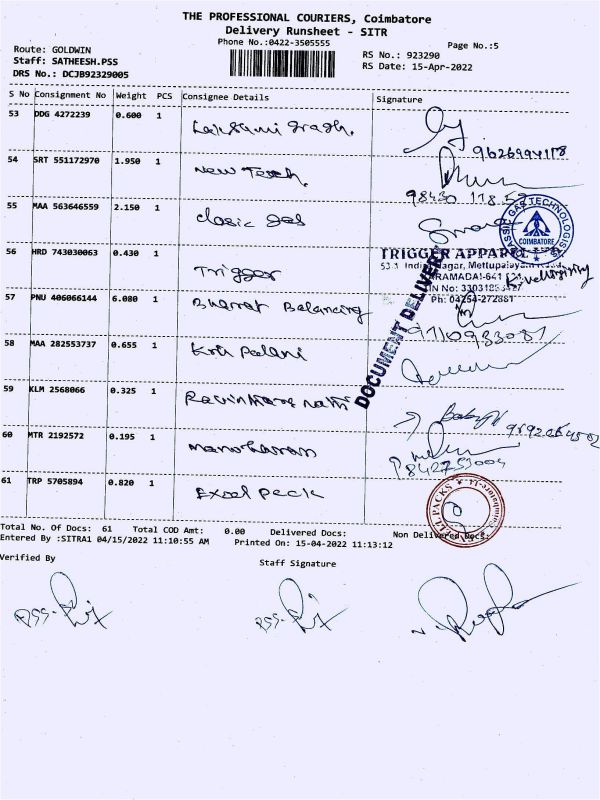 THE PROFESSIONAL COURIERS, Coimbatore
Delivery Runsheet - SITR
Phone No.:0422-3505555
Page No.:5
Route: GOLDWIN
Staff: SATHEESH.PSS
DRS No.: DCJB92329005
RS No.: 923290
RS Date: 15-Apr-2022
S No Consignment No Weight PCS Consignee Details Signature
53 DDG 4272239 0.600 1 Lakshmi
9626994118
54 SRT 551172970 1.950 1 New Tech.
98430 118
55 MAA 563646559 2.150 1 Clasic gas
CLASSIC GAS TECHNOLOGISTS
COIMBATORE
56 HRD 743030063 0.430 1 Trigger
TRIGGER APPAREL
Nagar, Mettupalayam
Ph: 04254-272881
DOCUMENT DELIVERY
57 PNU 406066144 6.080 1 Bharat Balancing
9710933081
58 MAA 282553737 0.655 1 Palani
59 KLM 2568066 0.325 1
60 MTR 2192572 0.195 1 Manoharan
61 TRP 5705894 0.820 1 Excel Pack
Total No. Of Docs: 61 Total COD Amt: 0.00 Delivered Docs: Non Delivered Docs:
Entered By :SITRA1 04/15/2022 11:10:55 AM Printed On: 15-04-2022 11:13:12
Verified By
Staff Signature